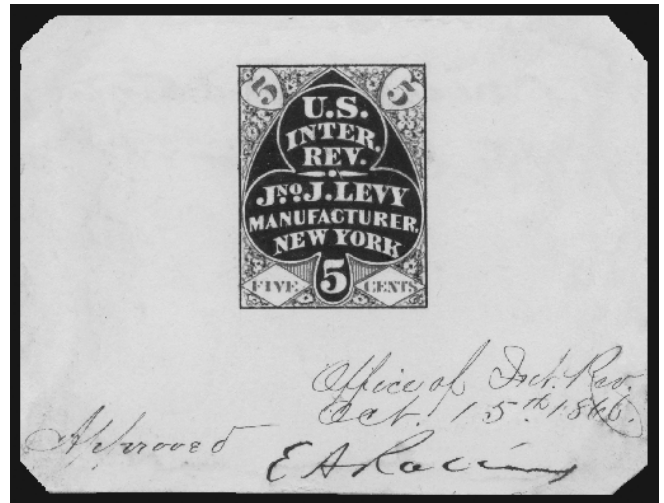 5 5
U.S.
INTER.
REV.
JNO. J. LEVY
MANUFACTURER.
NEW YORK
5
FIVE CENTS
Office of Int. Rev.
Oct. 15th 1866.
Approved
E A Rollins